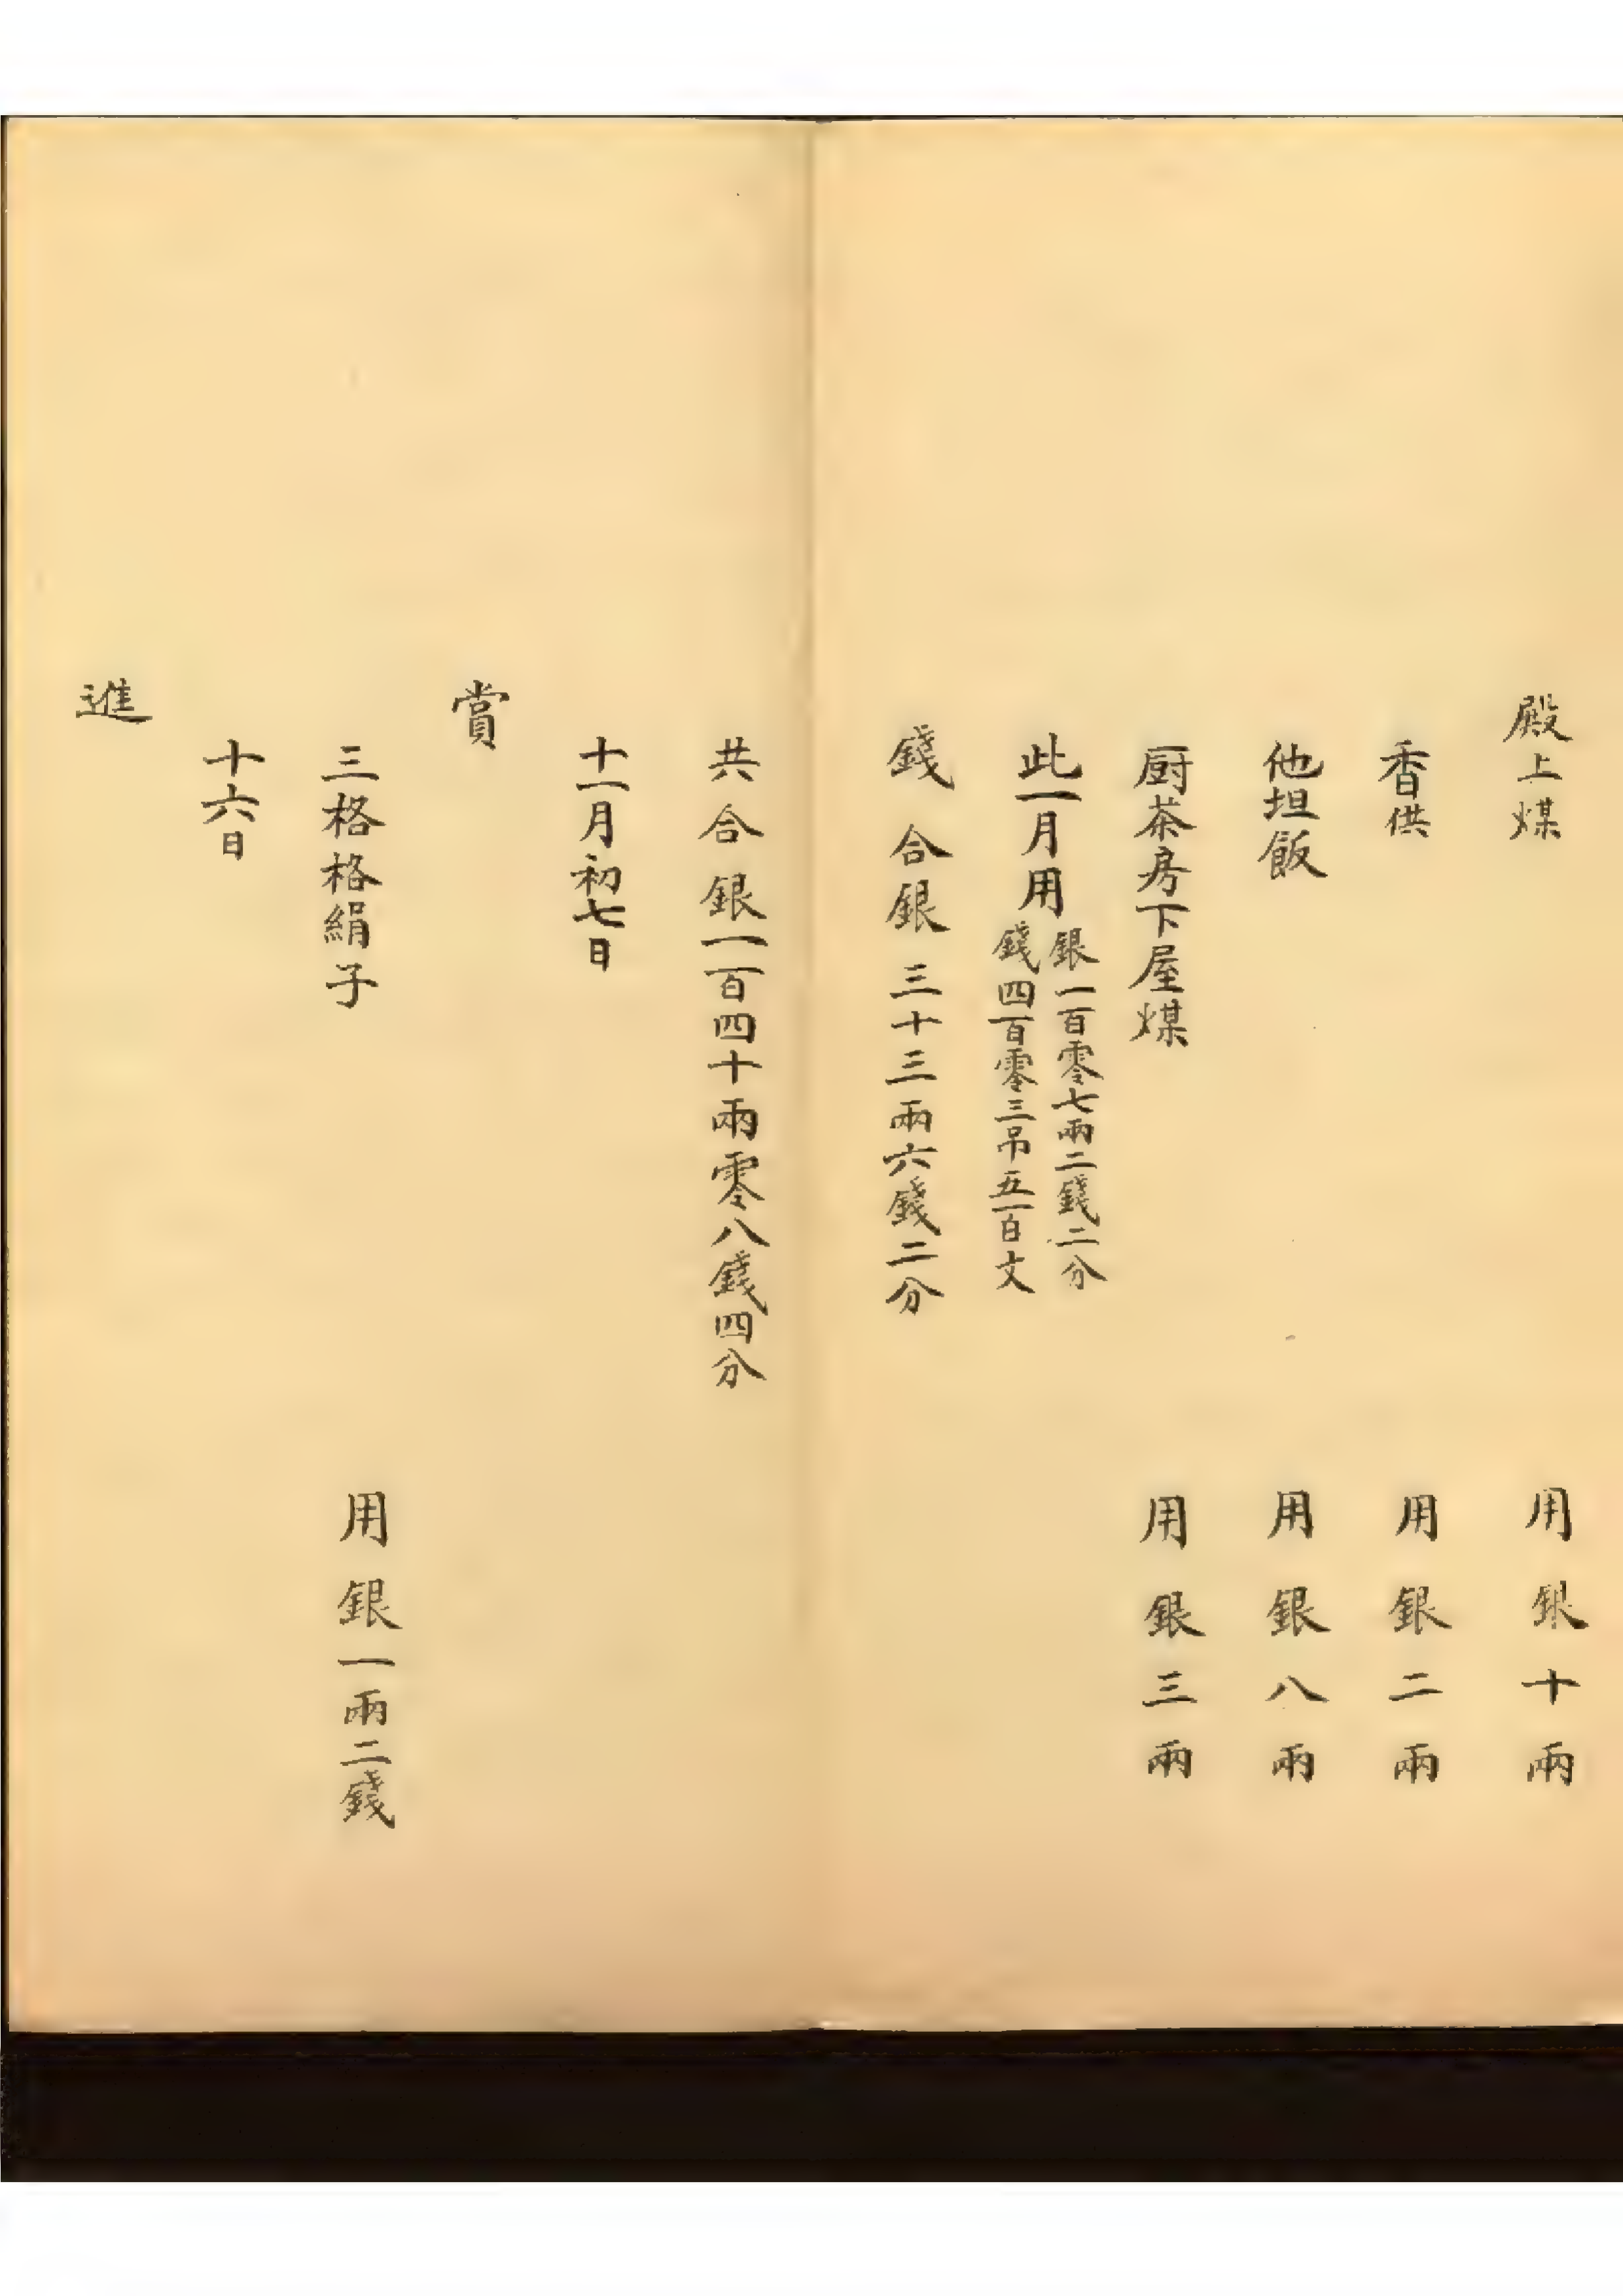 殿上煤 用銀十兩
香供 用銀二兩
他坦飯 用銀八兩
厨茶房下屋煤 用銀三兩
此一月用
銀一百零七兩二錢二分
錢四百零三吊五百文
錢合銀三十三兩六錢二分
共合銀一百四十兩零八錢四分
十一月初七日
賞
三格格絹子 用銀一兩二錢
十六日
進